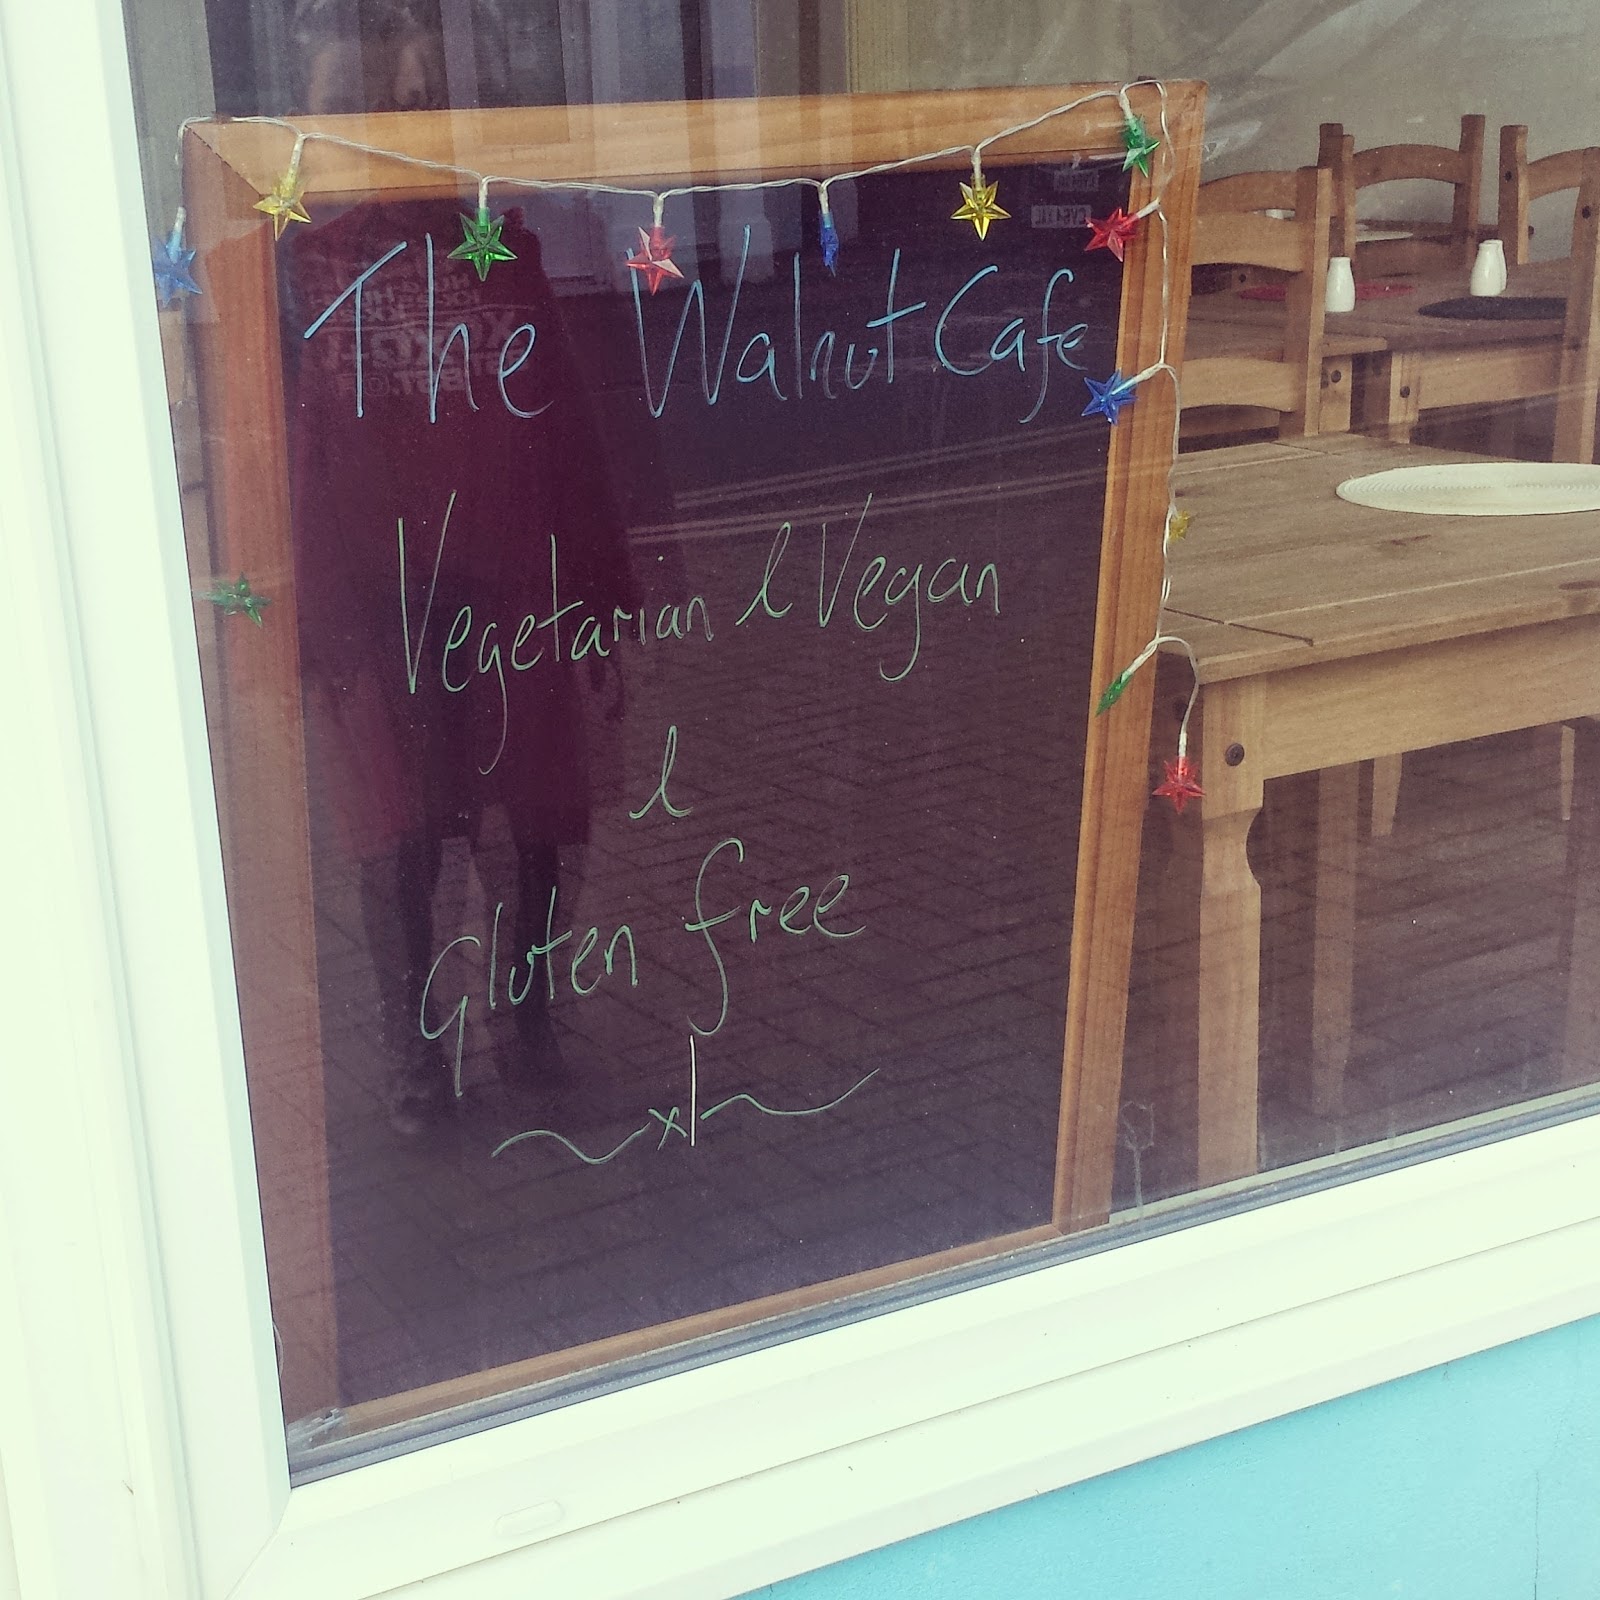 The Walnut Cafe
Vegetarian & Vegan
&
Gluten free
x